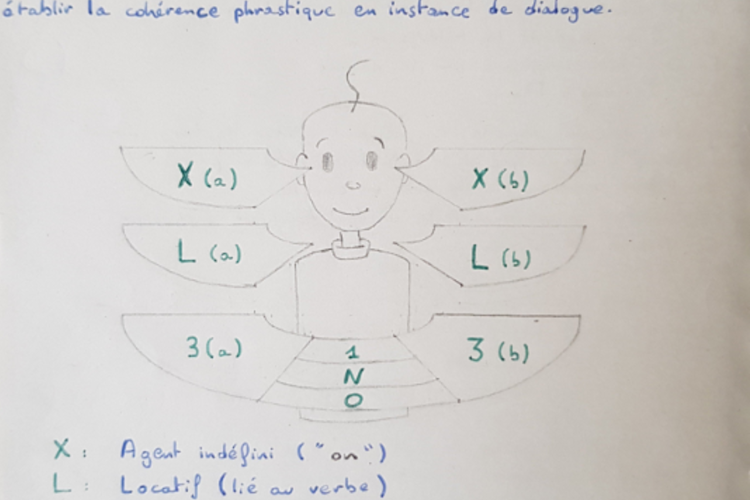 établir la cohérence phrastique en instance de dialogue.
X (a) X (b)
L (a) L (b)
3 (a) 1 3 (b)
N
O
X : Agent indéfini ("on")
L : Locatif (lié au verbe)